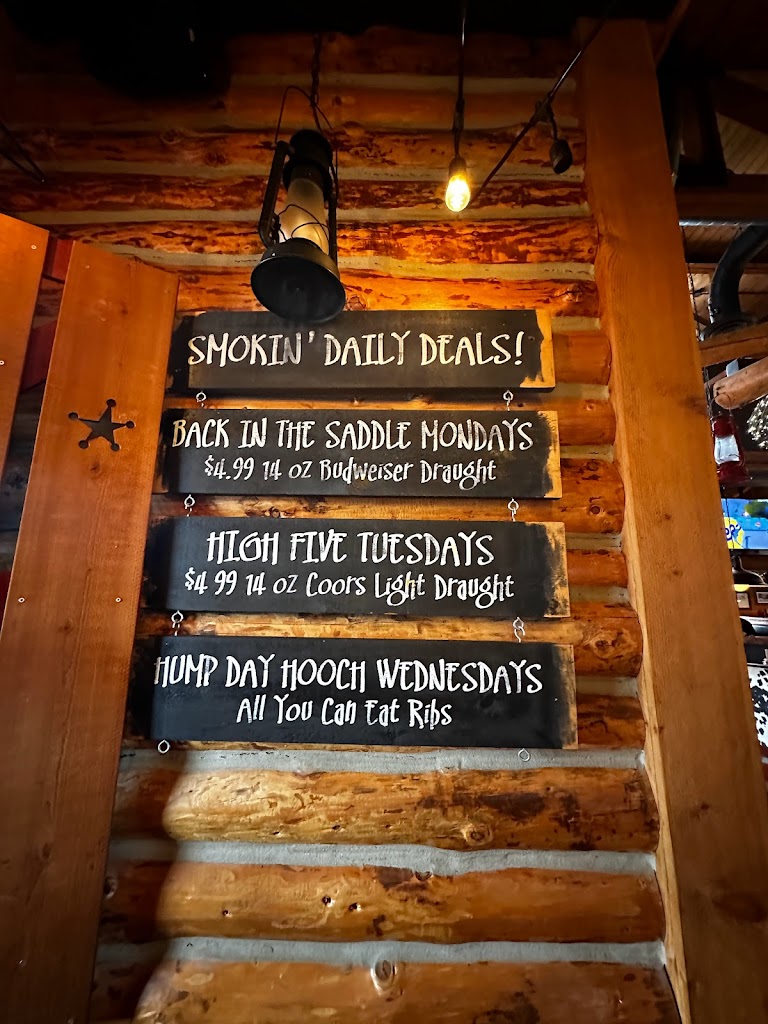 SMOKIN' DAILY DEALS!
BACK IN THE SADDLE MONDAYS
$4.99 14 oz Budweiser Draught
HIGH FIVE TUESDAYS
$4 99 14 oz Coors Light Draught
HUMP DAY HOOCH WEDNESDAYS
All You Can Eat Ribs